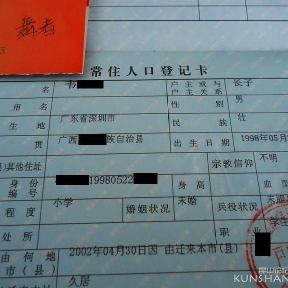 舞者
常住人口登记卡
名 韦 户主或与户主关系 长子
用名 性别 男
生地 广东省深圳市 民族 壮
贯 广西 族自治县 出生日期 1998年05月
其他住址 宗教信仰 不明
身份 编号 19980522 身高
程度 小学 婚姻状况 未婚 兵役状况 未
处所
由何地 2002年04月30日因 由迁来本市(县)
市(县)
久居
昆山论坛
KUNSHAN